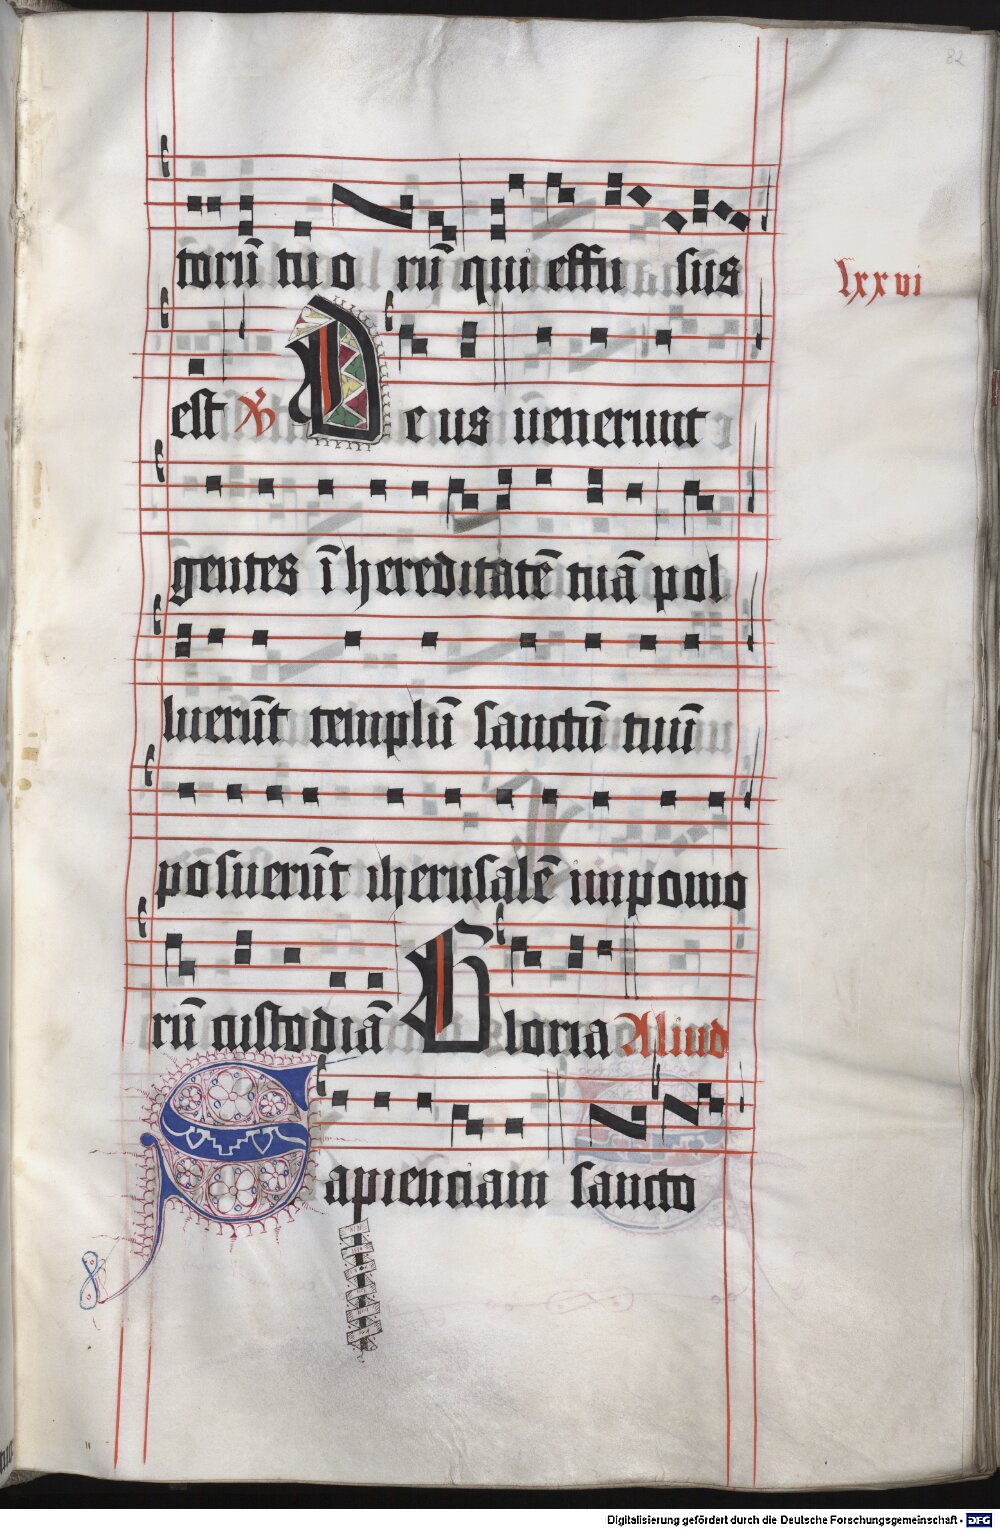 82
torū tuo rū qui effu sus
lxxvi
est Deus uenerunt
gentes ī hereditatē tuā pol
luerūt templū sanctū tuū
posuerūt iherusalē im pomo
rū custodiā Gloria Aliud
Sapienciam sancto
Digitalisierung gefördert durch die Deutsche Forschungsgemeinschaft - DFG